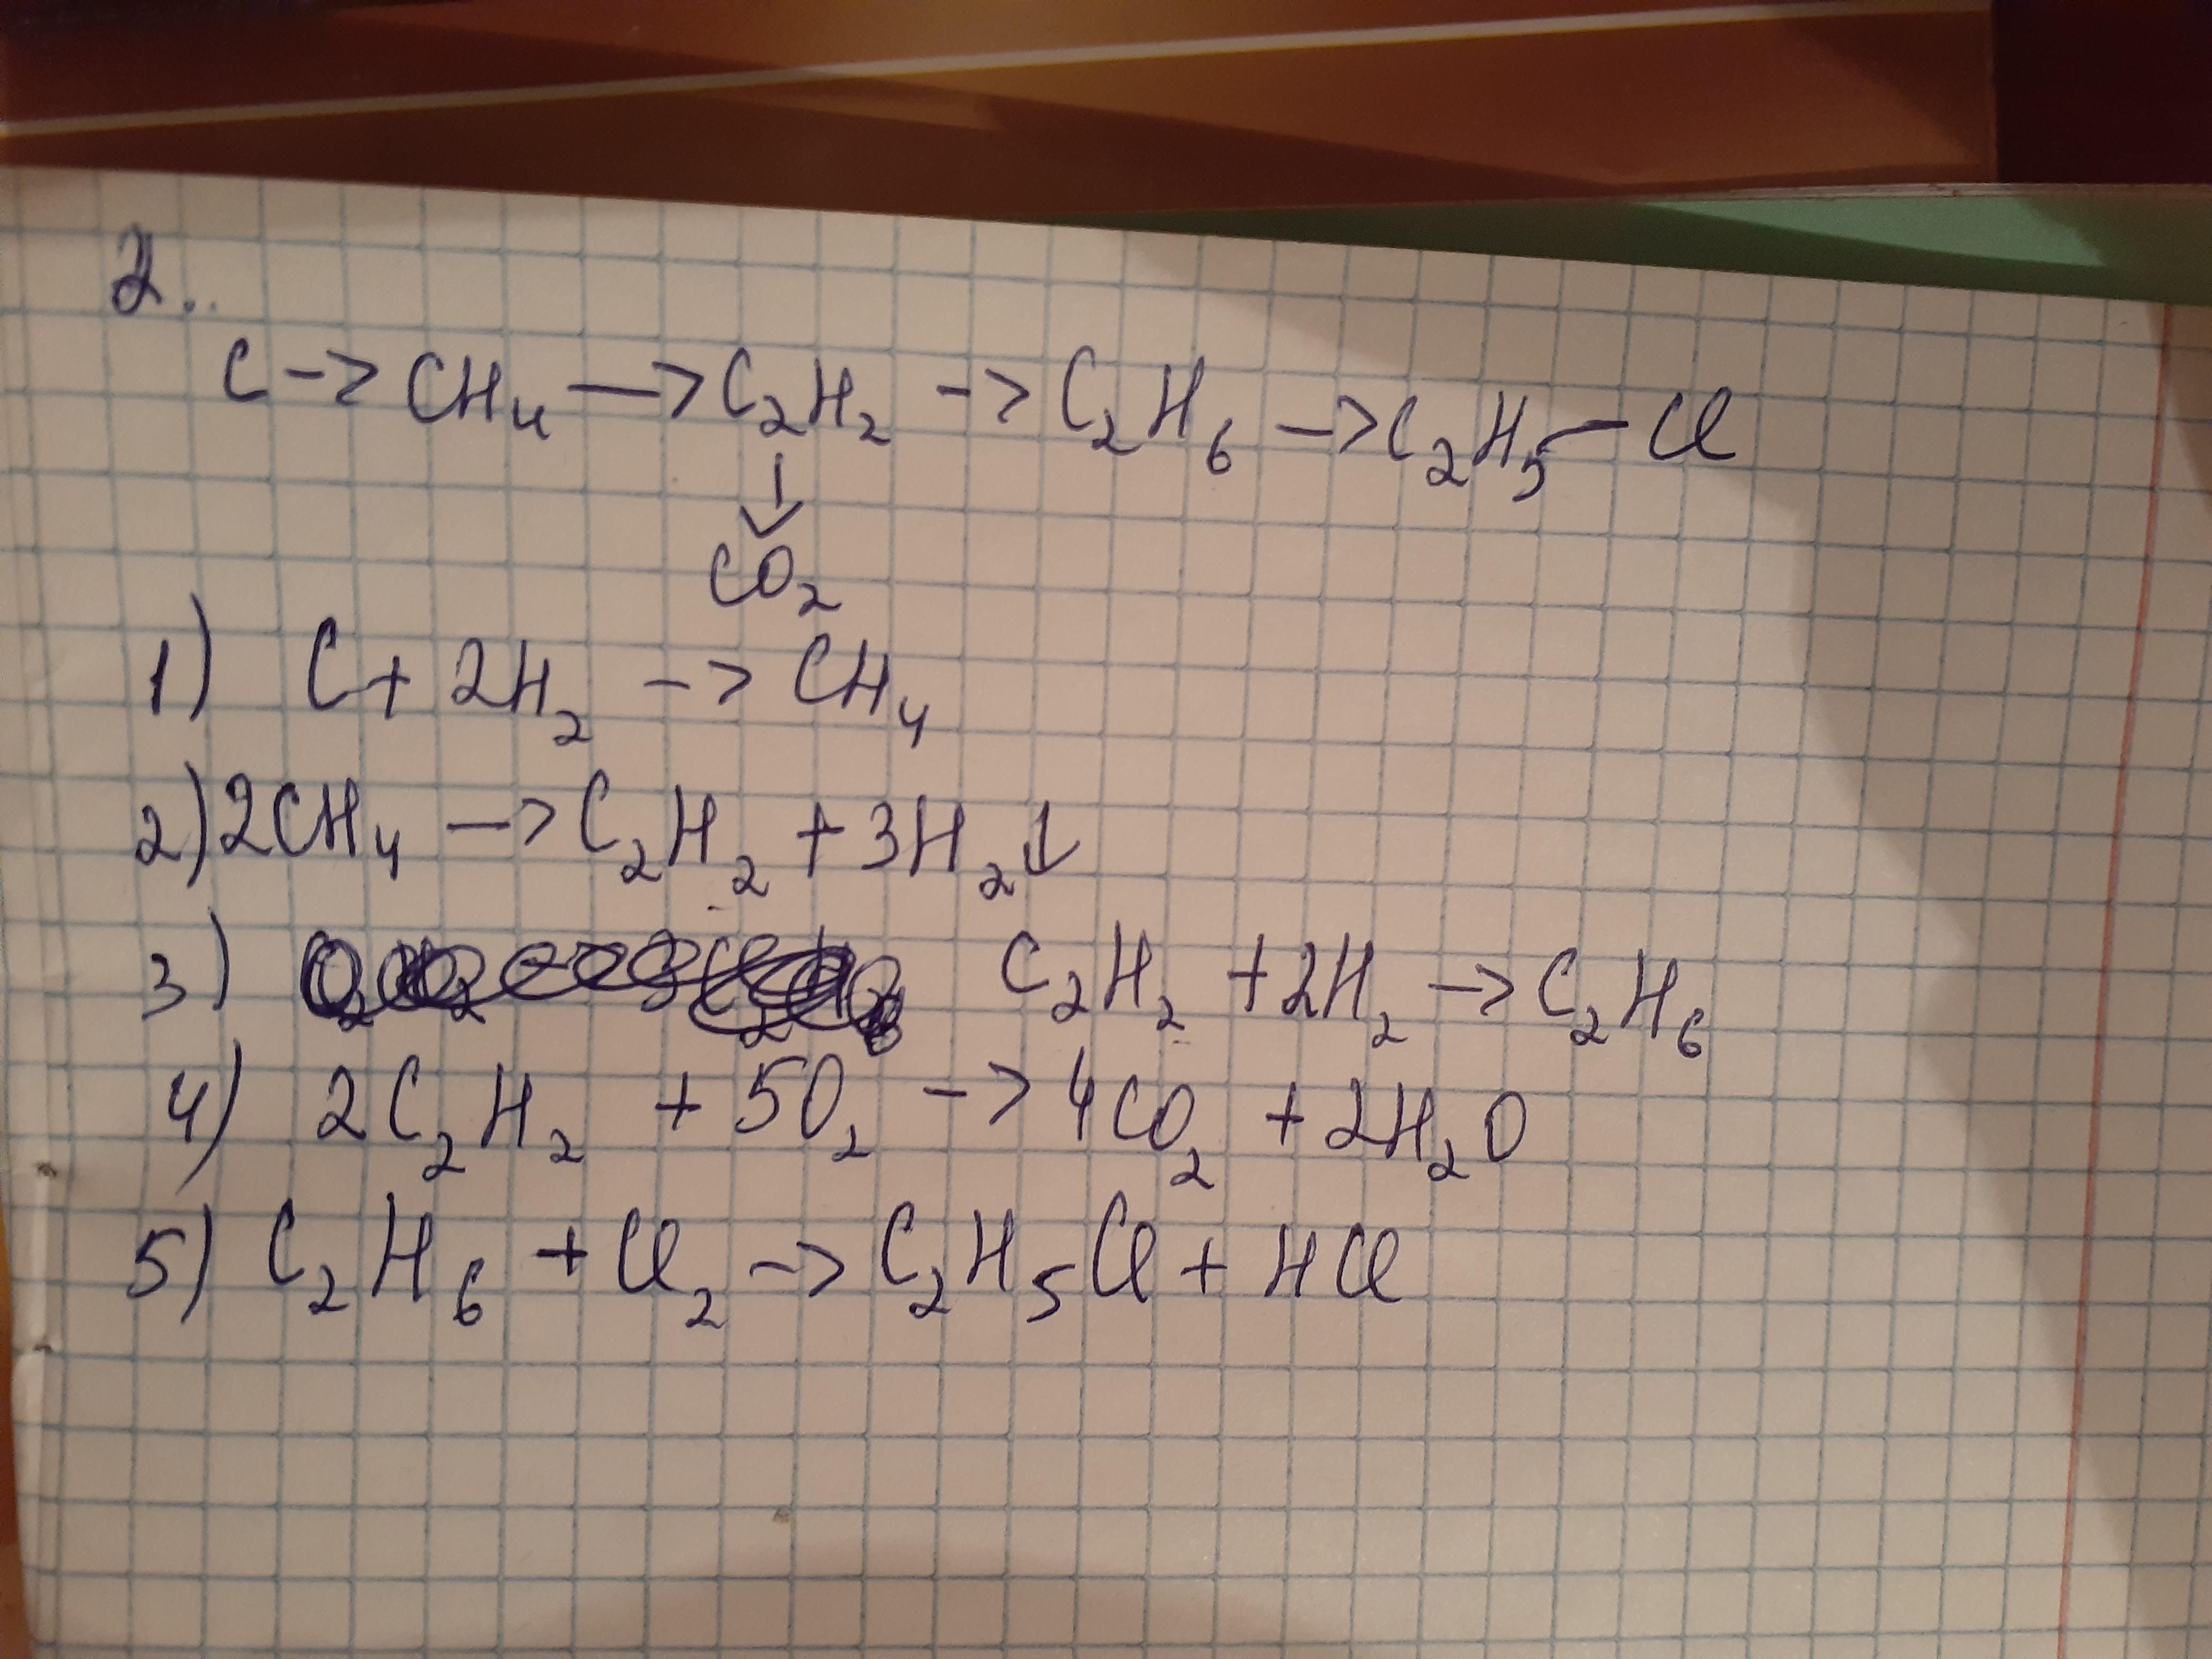 2.
C -> CH₄ -> C₂H₂ -> C₂H₆ -> C₂H₅-Cl
↓
CO₂
1) C + 2H₂ -> CH₄
2) 2CH₄ -> C₂H₂ + 3H₂↓
3) C₂H₂ + 2H₂ -> C₂H₆
4) 2C₂H₂ + 5O₂ -> 4CO₂ + 2H₂O
5) C₂H₆ + Cl₂ -> C₂H₅Cl + HCl